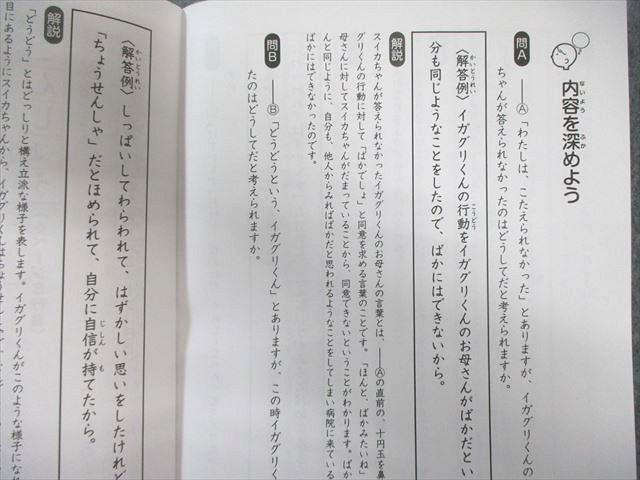 内容を深めよう
ないよう ふか
問A ――Ⓐ「わたしは、こたえられなかった」とありますが、イガグリくんの
ちゃんが答えられなかったのはどうしてだと考えられますか。
〈解答例〉イガグリくんの行動をイガグリくんのお母さんがばかだとい
かいとうれい こうどう
分も同じようなことをしたので、ばかにはできないから。
解説
スイカちゃんが答えられなかったイガグリくんのお母さんの言葉とは、――Ⓐの直前の、十円玉を鼻
グリくんの行動に対して「ばかでしょ」と同意を求める言葉のことです。「ほんと、ばかみたいね」
母さんに対してスイカちゃんがだまっていることから、同意できないということがわかります。ばか
んと同じように、自分も、他人からみればばかだと思われるようなことをしてしまい病院に来ている
ばかにはできなかったのです。
問B ――Ⓑ「どうどうという、イガグリくん」とありますが、この時イガグリく
たのはどうしてだと考えられますか。
〈解答例〉しっぱいしてわらわれて、はずかしい思いをしたけれど
かいとうれい
「ちょうせんしゃ」だとほめられて、自分に自信が持てたから。
じしん も
解説
「どうどう」とはどっしりと構え立派な様子を表します。イガグリくんがこのような様子になれ
目にあるようにスイカちゃんから、イガグリくんは